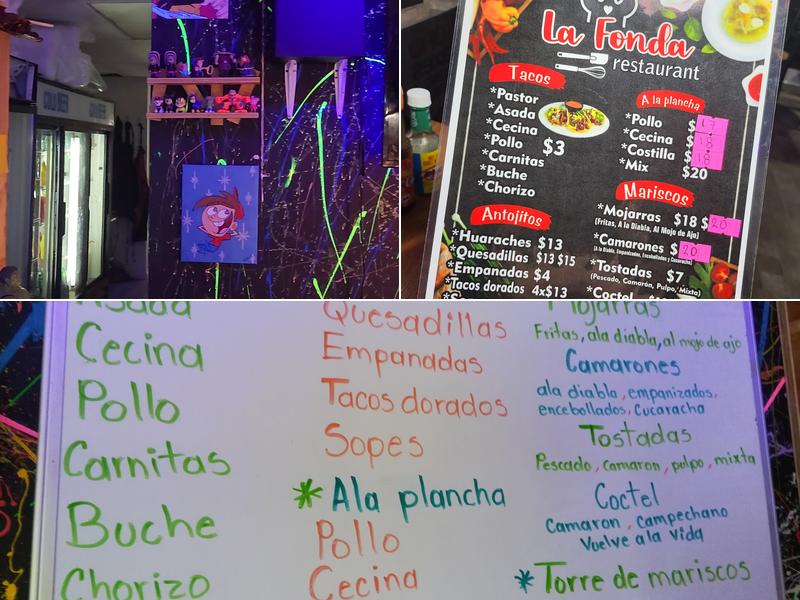 COLD BEER
COLD BEER
La Fonda
restaurant
Tacos
*Pastor
*Asada
*Cecina
*Pollo
*Carnitas
*Buche
*Chorizo
$3
Antojitos
*Huaraches $13
*Quesadillas $13 $15
*Empanadas $4
*Tacos dorados 4x$13
A la plancha
*Pollo $17
*Cecina $18
*Costilla $18
*Mix $20
Mariscos
*Mojarras $18 $20
(Fritas, A la Diabla, Al Mojo de Ajo)
*Camarones $20
(A la Diabla, Empanizados, Encebollados y Cucaracha)
*Tostadas $7
(Pescado, Camarón, Pulpo, Mixta)
*Coctel
Asada
Cecina
Pollo
Carnitas
Buche
Chorizo
Quesadillas
Empanadas
Tacos dorados
Sopes
*Ala plancha
Pollo
Cecina
Mojarras
Fritas, ala diabla, al mojo de ajo
Camarones
ala diabla, empanizados,
encebollados, Cucaracha
Tostadas
Pescado, camaron, pulpo, mixta
Coctel
Camaron, Campechano
Vuelve a la vida
*Torre de mariscos